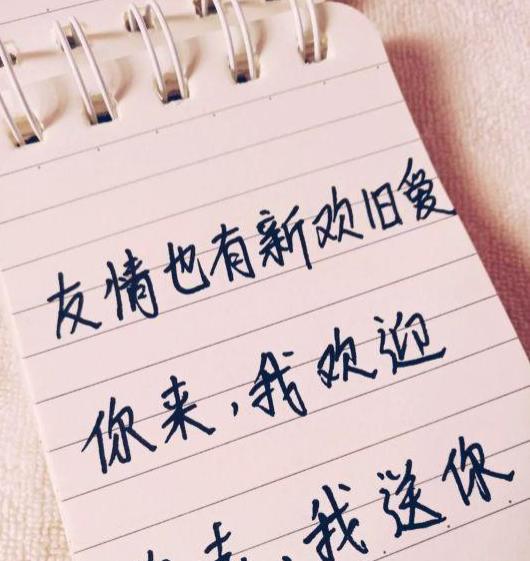 友情也有新欢旧爱
你来,我欢迎
去,我送你